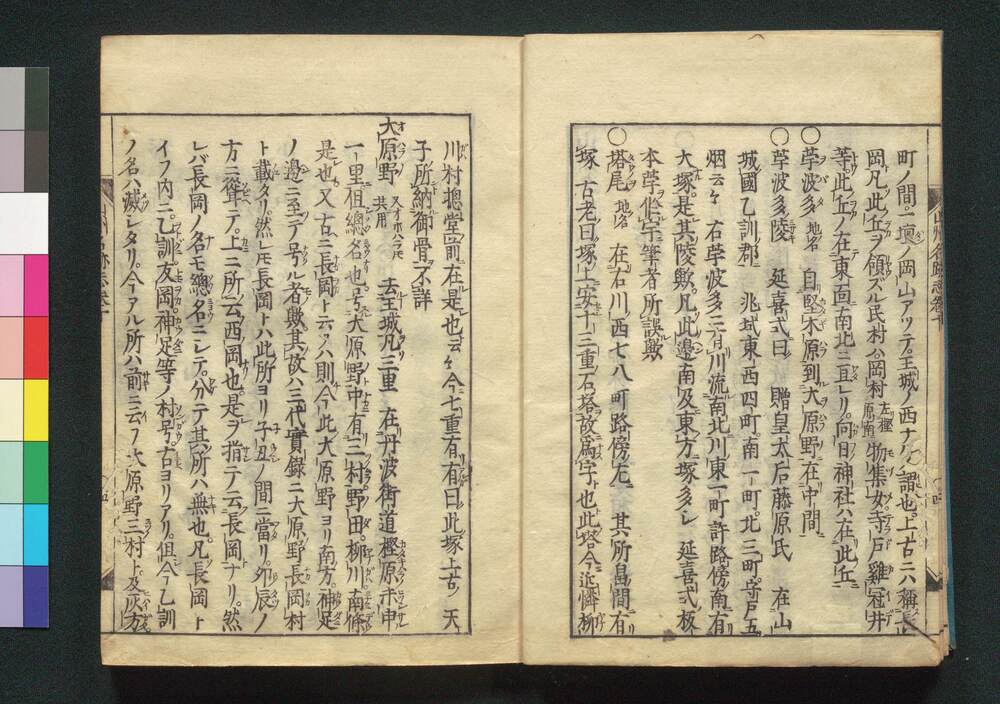 町ノ間ニ一壇ノ岡山アリテ王城ノ西ナル謂也上古ニハ稱長
岡凡此丘ヲ領ズル民村ハ岡村 物集女寺戸雞冠井
等此丘ノ在東面南北ニ亘レリ向日神社ハ在此丘ニ
○莩波多 地名 自堅木原到大原野在中間
○莩波多陵 延喜式曰 贈皇太后藤原氏 在山
城國乙訓郡 兆域東西四町南一町北三町守戸五
烟云々 右莩波多ニ有川流南北川東一町許路傍南有
大塚是其陵歟凡此邊南及東方塚多シ 延喜式板
本莩作宇筆者所誤歟
○塔尾 地名 在右川西七八町路傍左 其所畠間有
塚 古老曰塚上安十三重石塔故爲字也此塔今近憐柳
川村摠堂前在是也云々今七重有有曰此塚上古 天
子所納御骨不詳
大原野 又オホハラモ共用 去王城凡三里 在丹波街道樫原未申
一里俎總名也号大原野中有三村野田柳川南條
是也又古ニ長岡ト云フハ則今此大原野ヨリ南方神足
ノ邊ニ至テ号ル者歟其故ハ三代實録ニ大原野長岡村
ト載タリ然レモ長岡トハ此所ヨリ子丑ノ間ニ當リ夘辰ノ
方ニ聳テ上ニ所云西岡也是ヲ指テ云長岡トナリ然
レバ長岡ノ名モ總名ニシテ分テ其所ハ無也凡長岡ト
イフ内ニ乙訓友岡神足等ノ村号古ヨリアリ俎今乙訓
ノ名ハ滅レタリ今アル所ハ前ニ云フ大原野三村ト及灰方